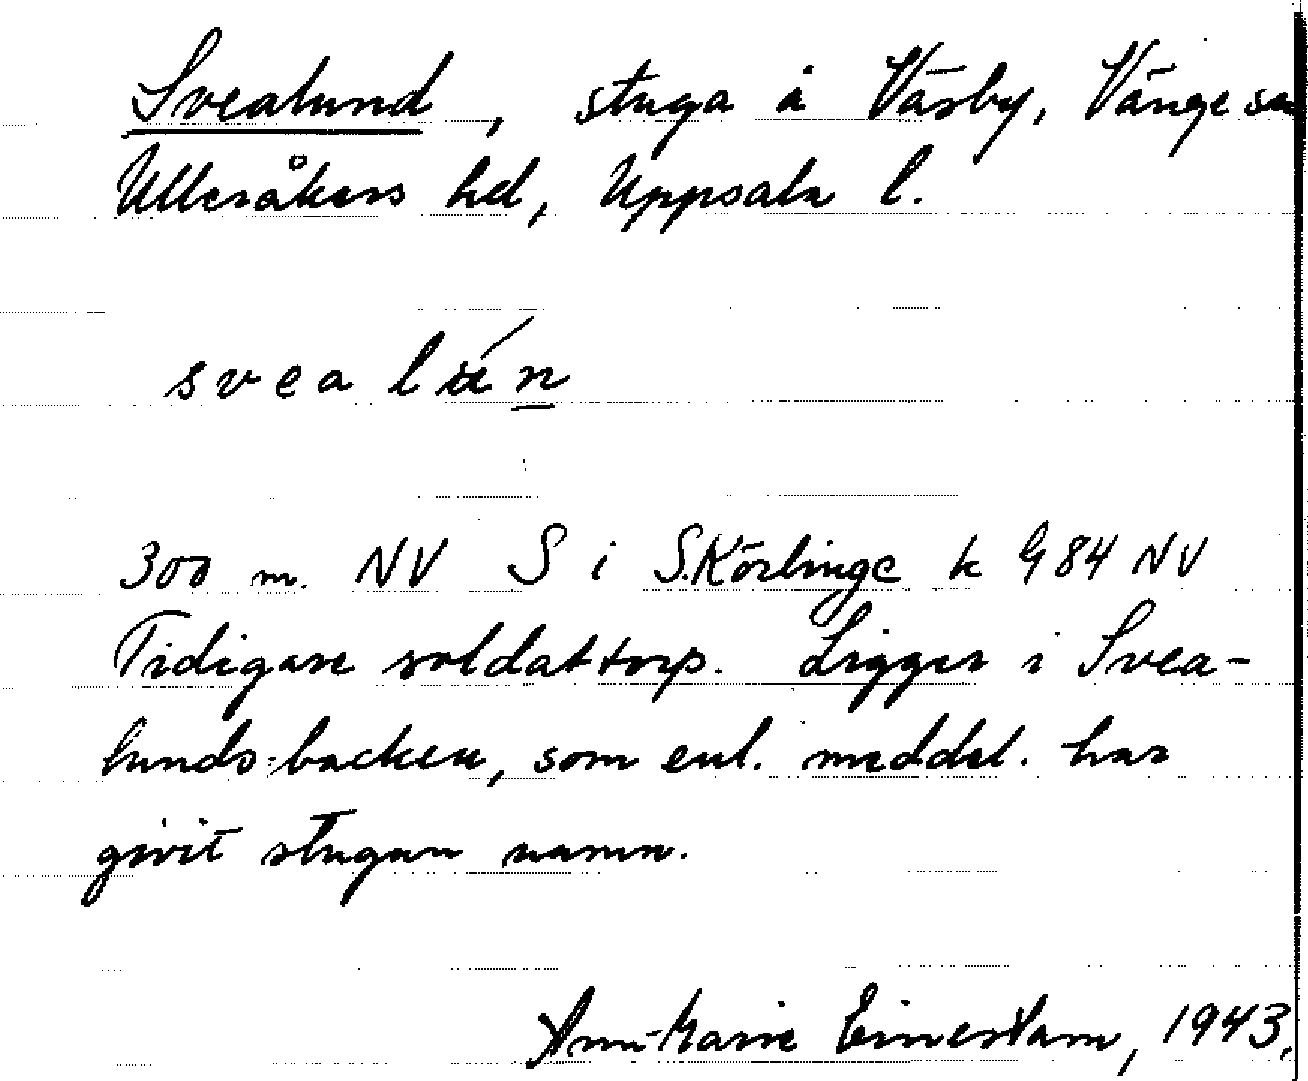 Svealund, stuga å Väsby, Vänge sn
Ulleråkers hd, Uppsala l.
svealún
300 m. NV S i S.Körlinge k 984 NV
Tidigare soldattorp. Ligger i Svea-
lunds-backen, som enl. meddel. har
givit stugan namn.
Ann-Marie Einerstam, 1943.